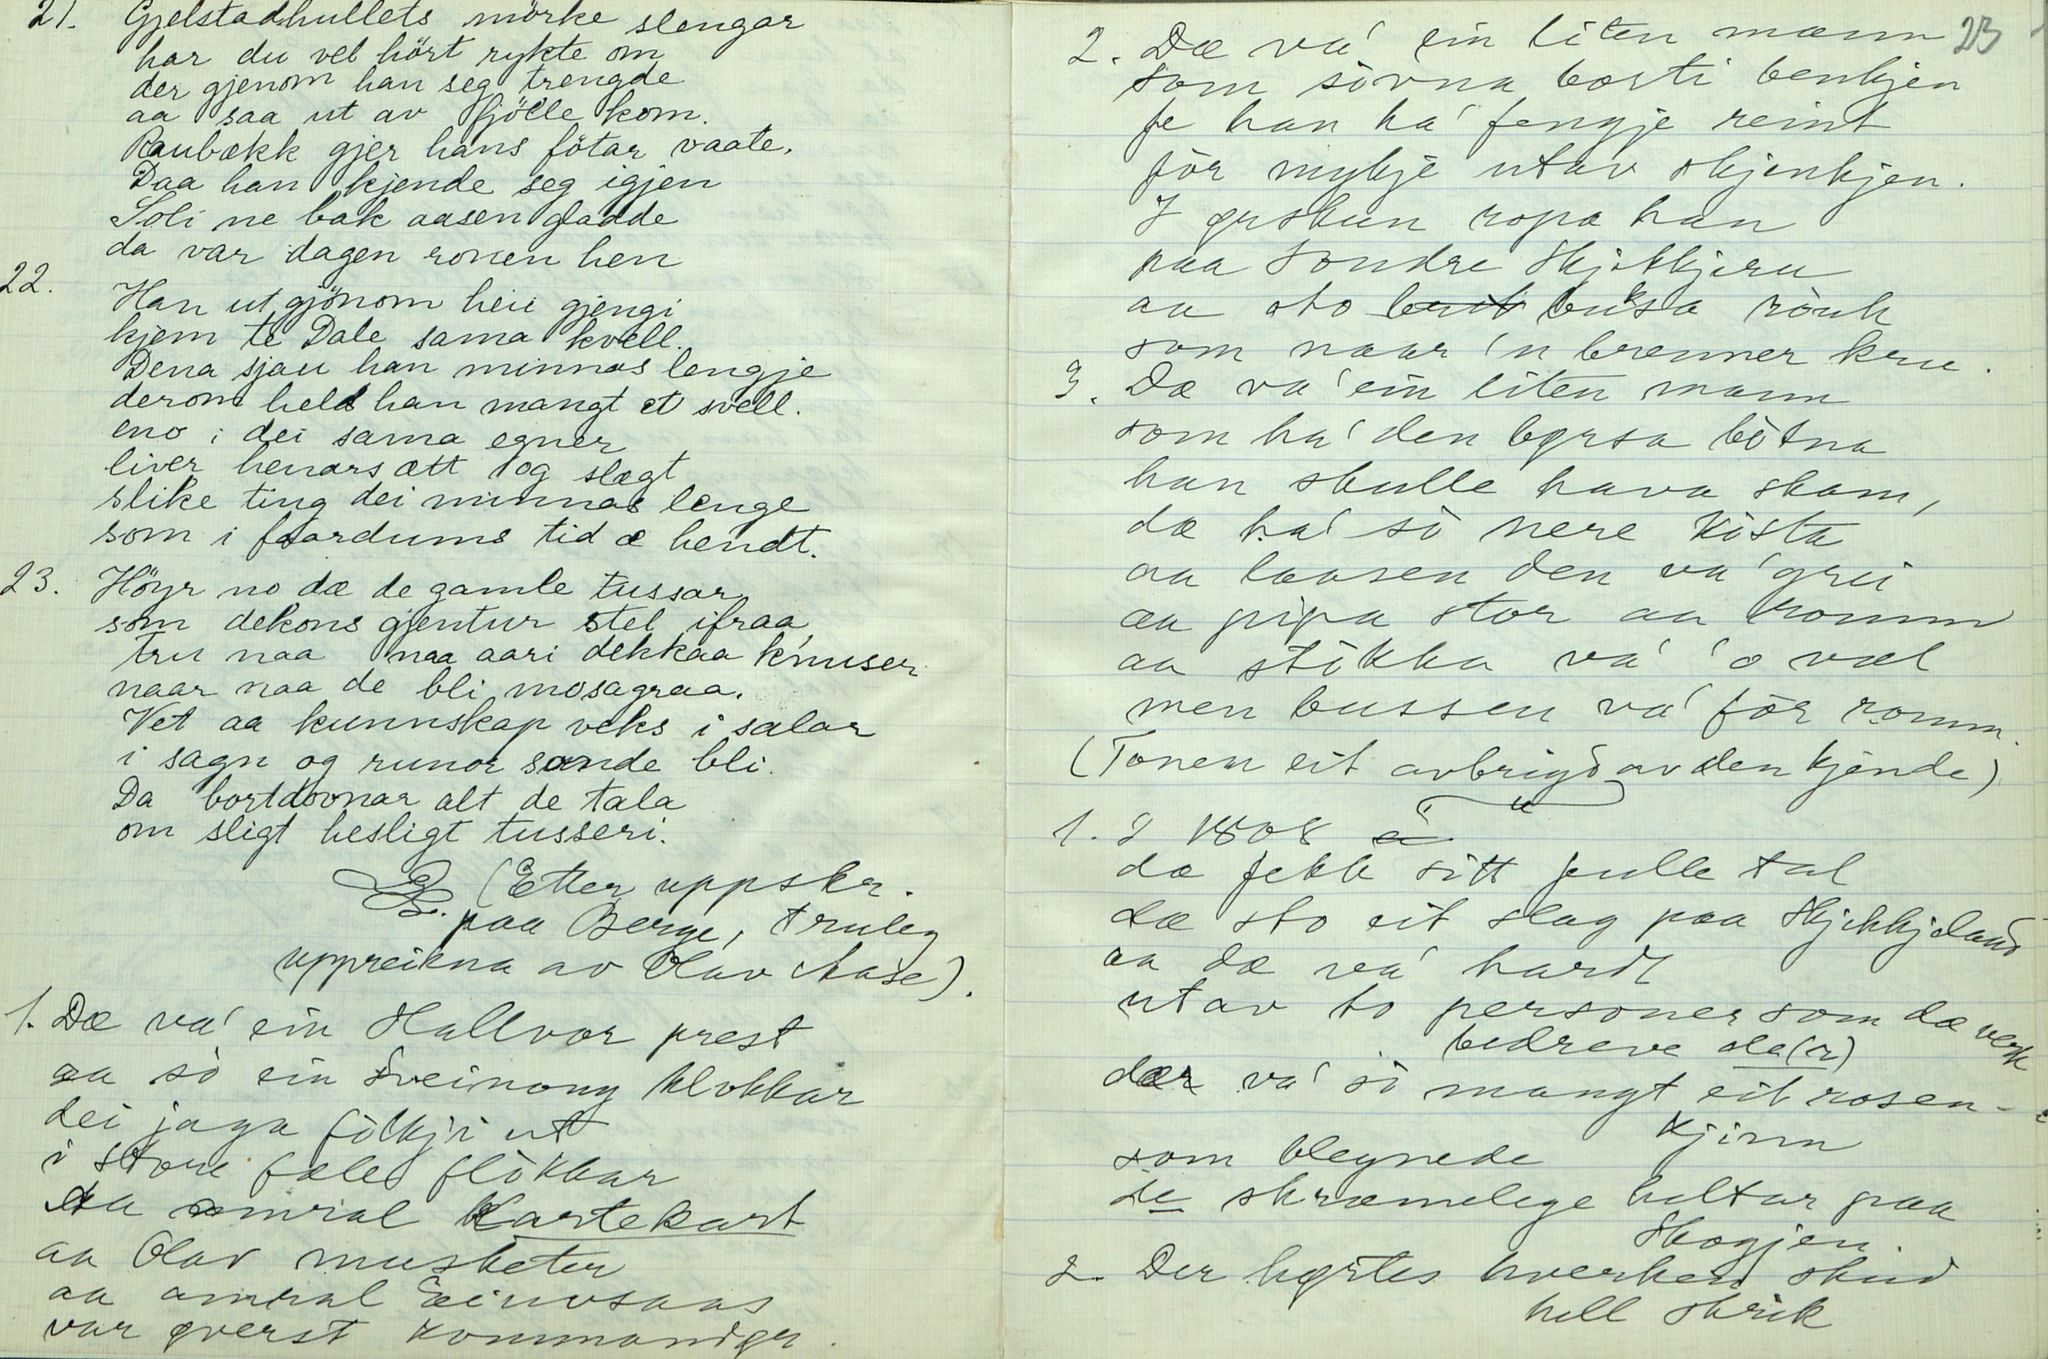 21. Gjelstadhullets mörke slengar
har du vel hört rykte om
der gjenom han seg trengde
aa saa ut av fjölle kom.
Raubækk gjer hans fötar vaate.
Daa han kjende seg igjen
Soli ne bak aasen gladde
da var dagen ronen hen
22. Han ut gjönom heii gjengi
kjem te Dale sama kvell.
Dena sjau han minnas lengje
derom held han mangt et svell.
eno i dei sama egner
liver henars ætt og slægt
slike ting dei minnas lenge
som i faardums tid æ hendt.
23. Höyr no dæ de gamle tussar
som dekons gjentur stel ifraa
tru naa naa aari dekkaa knuser
naar naa de bli mosagraa.
Vet aa kunnskap veks i salar
i sagn og runor sande bli.
Da bortdovnar alt de tala
om sligt hesligt tusseri.
(Etter uppskr.
paa Berge, truleg
uppreikna av Olav Aase).
1. Dæ va' ein Hallvor prest
aa sò ein Sveinong klokkar
dei jaga fòlkji ut
i store fæle flòkkar
Aa amiral Kartekart
aa Olav musketer
aa amiral Eeinosaas
var øverst kommandør.
23
2. Dæ va' ein liten mann
som sòvna borti benkjen
fe han ha' fengje reint
før mykje utav skjenkjen.
I ørskun ropa han
paa Sondre Skjekkjeru
aa sto buksa rònk
som naar 'n brenner kru.
3. Dæ va' ein liten mann
som ha' den børsa bòtna
han skulle hava skam,
dæ ha' sò nere kòsta
aa laasen den va' grei
aa pipa stor aa romm
aa stòkka va' 'o væl
men bussen va' før romm.
(Tonen eit avbrigd av den kjende)
1. I 1808
dæ fekk sitt fulle tal
dæ sto eit slag paa Skjekkjeland
aa dæ va' hardt
utav to personer som dæ verk
bedreve da(r)
dær va' sò mangt eit rosen-
kjinn
som blegnede
de skræmelege haltar paa
Skogjen.
2. Der hørtes hverken skud
hell skrik